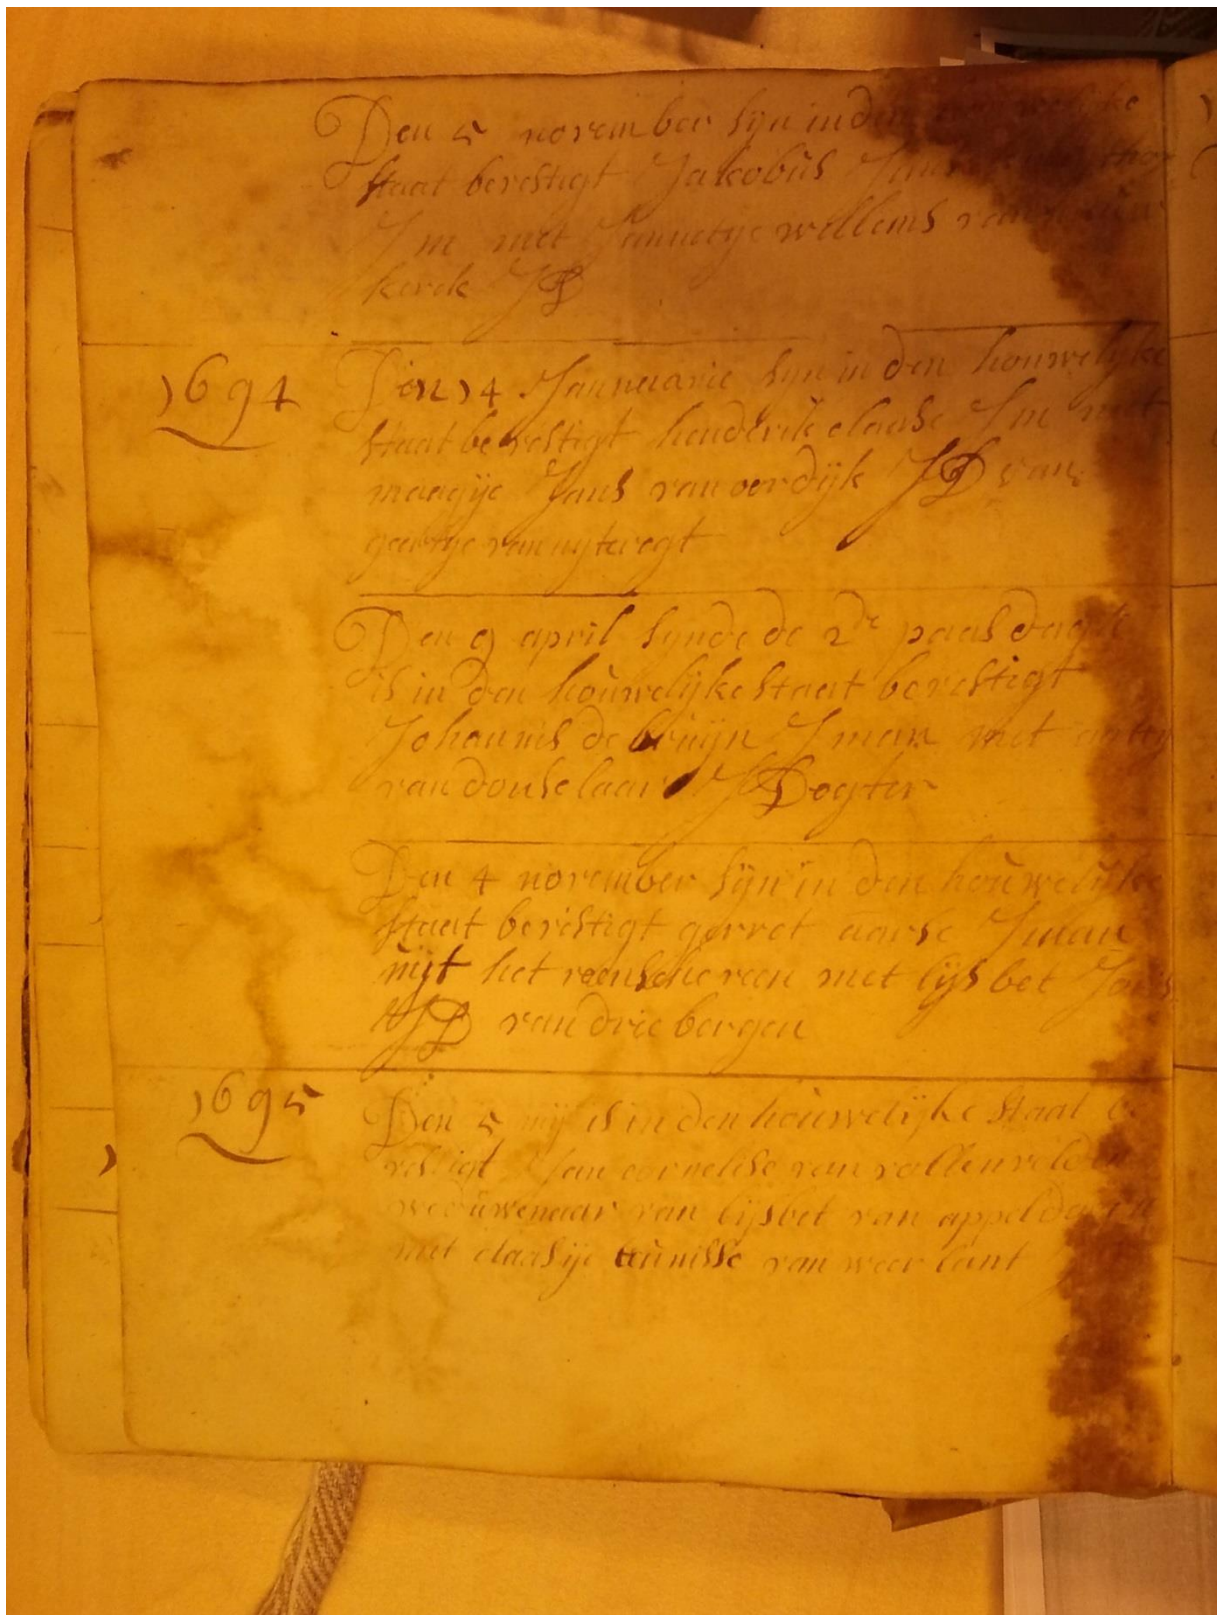 Den 5 november sijn in den
staat bevestigt Jakobus
J m met Jannetje willems van
kerck JD
1694
Den 14 Jannuarie sijn in den houwelijke
staat bevestigt henderik claasse J m met
maagije Jans van oerdijk JD van
geertje van uyteregt
Den 9 april synde de 2de paas dag
is in den houwelijke staat bevestigt
Johannis de bruijn J man met
van donselaar JDogter
Den 4 november sijn in den houwelijke
staat bevestigt gerret aarse J man
uijt het reensche veen met lijsbet Jans
JD van drie bergen
1695
Den 5 mij is in den houwelijke staat be
vestigt Jan cornelise van vollenvelde
weduwenaar van lijsbet van appeldoorn
met claasije teunisse van weer lant